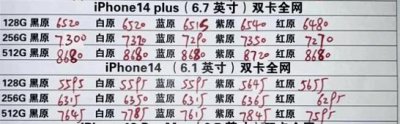 iPhone14 plus (6.7英寸) 双卡全网
128G 黑原 6520 白原 6520 蓝原 6515 紫原 6540 红原 6480
256G 黑原 7300 白原 7370 蓝原 7290 紫原 7350 红原 7270
512G 黑原 8680 白原 8680 蓝原 8680 紫原 8720 红原 8680
iPhone14 (6.1英寸) 双卡全网
128G 黑原 5595 白原 5595 蓝原 5595 紫原 5645 红原 5655
256G 黑原 6315 白原 6350 蓝原 6315 紫原 6365 红原 6295
512G 黑原 7645 白原 7785 蓝原 7615 紫原 7845 红原 7595